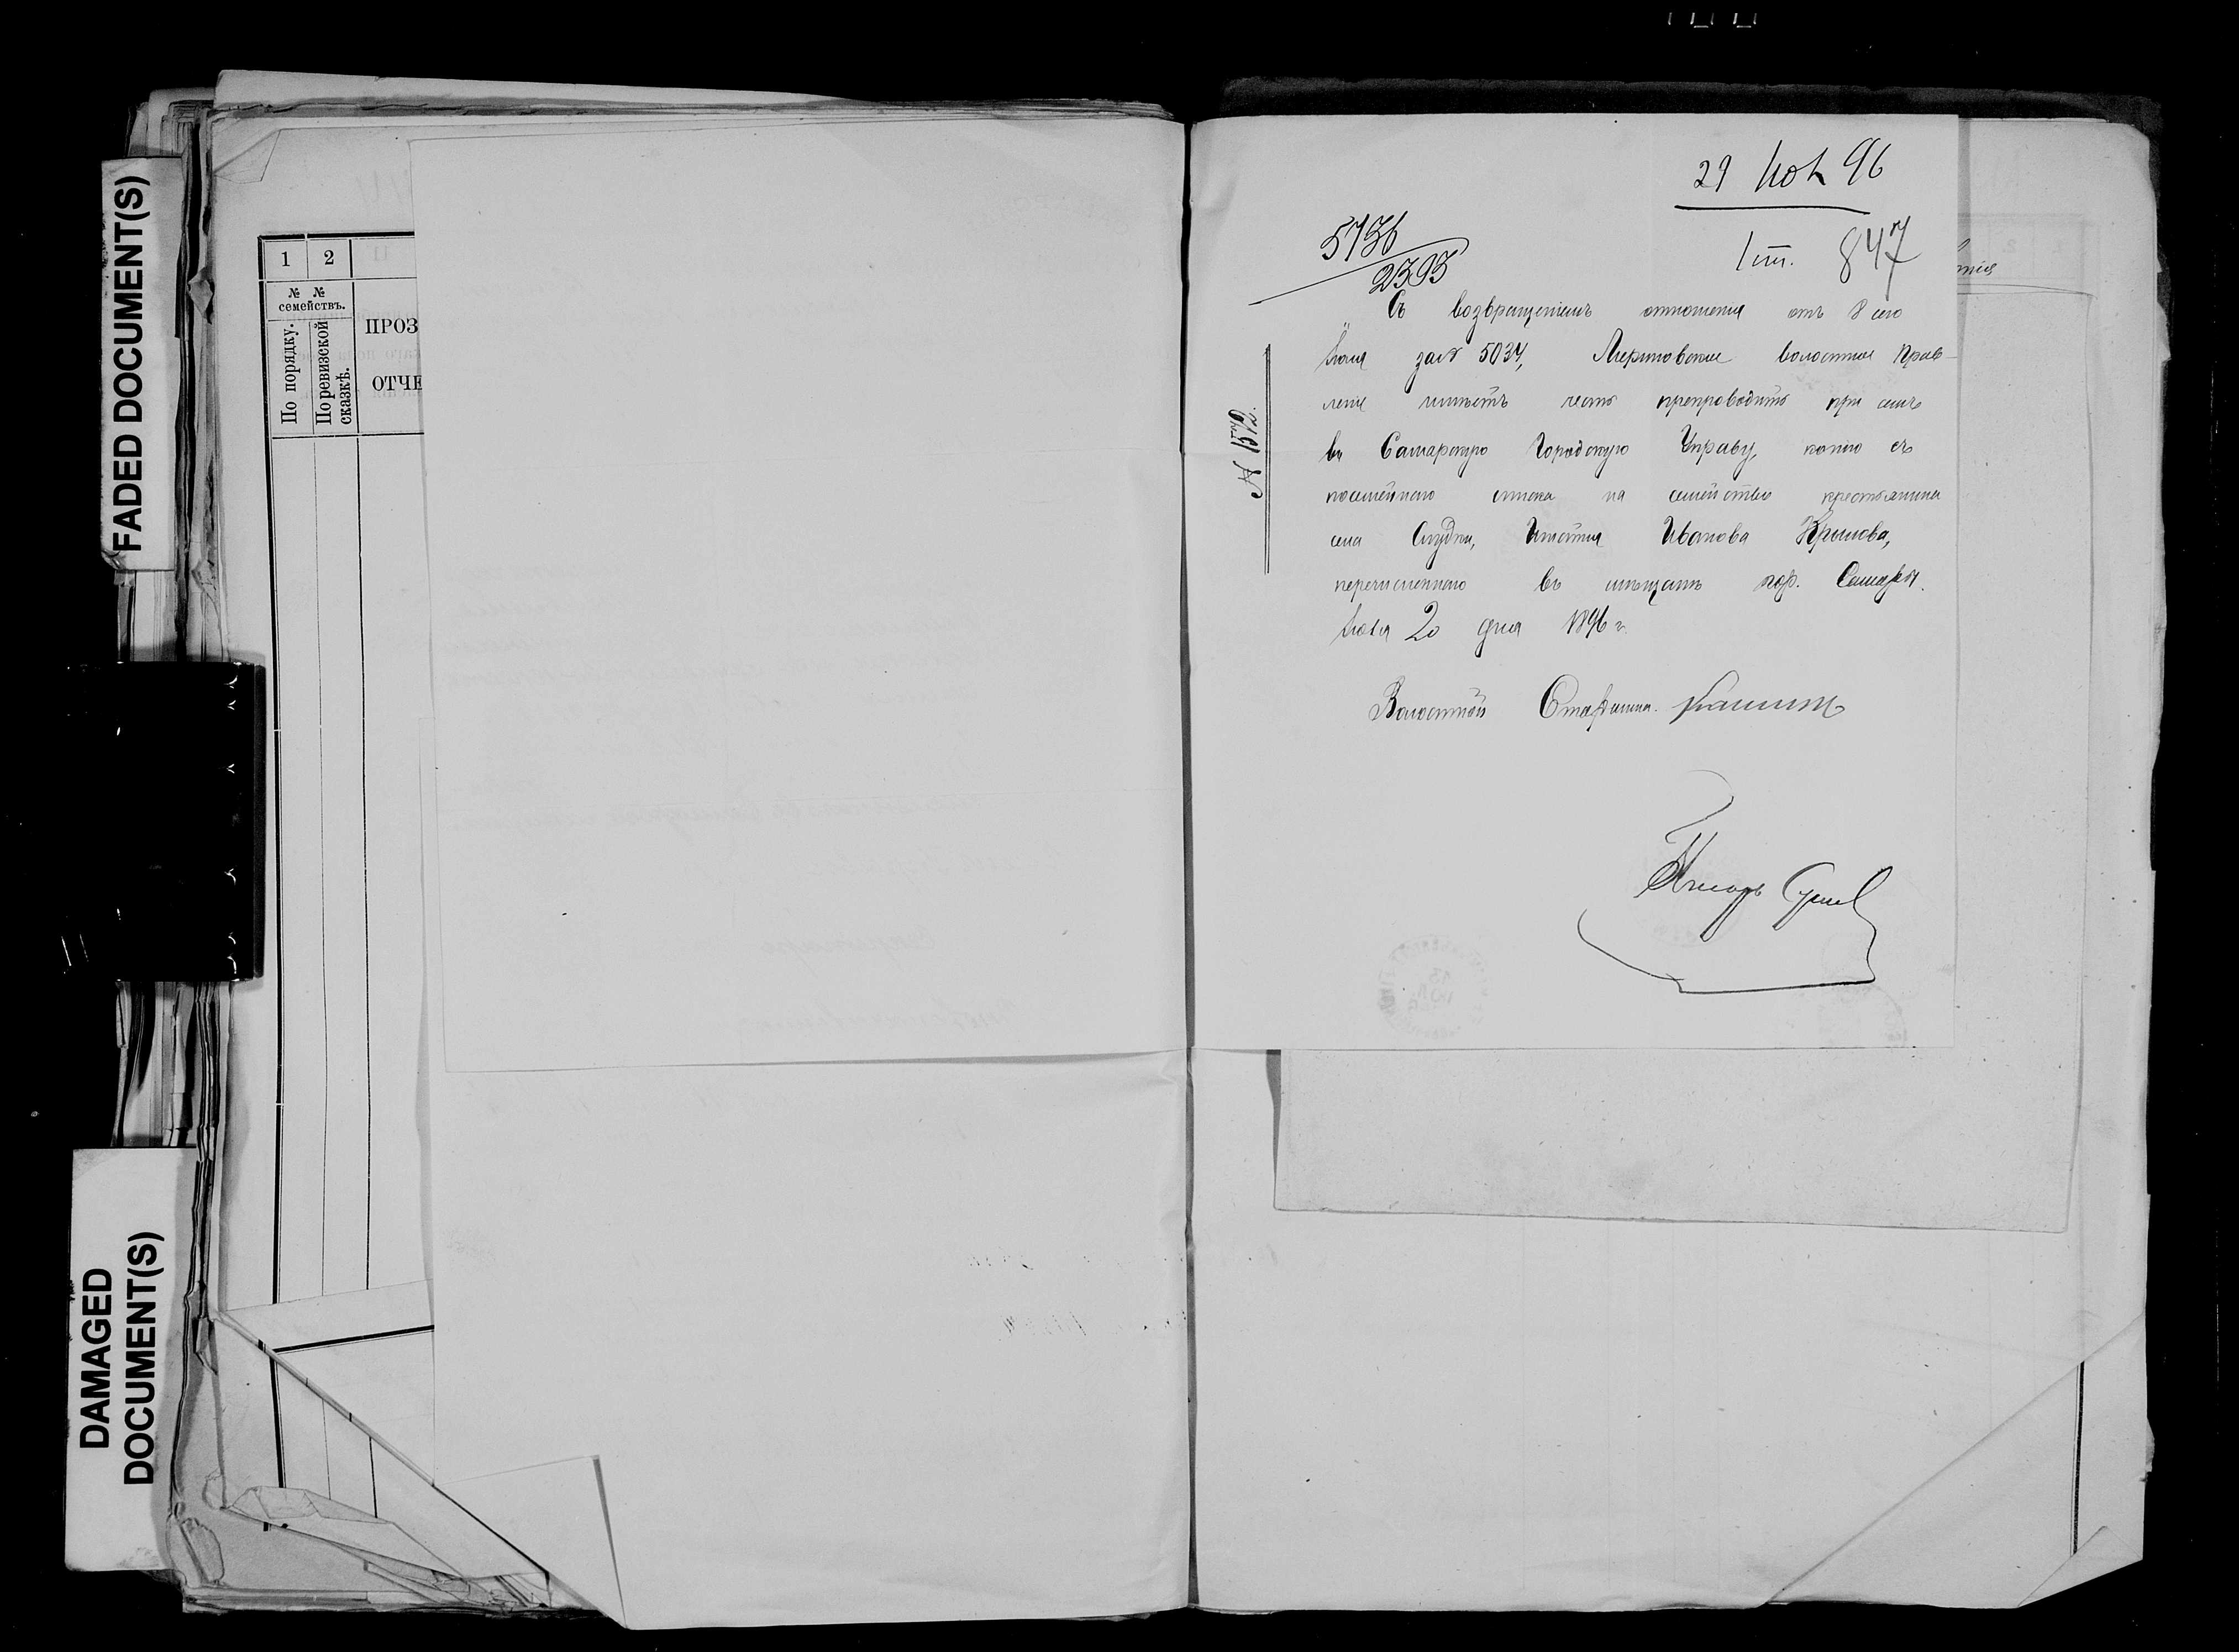 FADED DOCUMENT(S)
DAMAGED
DOCUMENT(S)
1 2
№ № семействъ.
По порядку.
По ревизской сказкѣ.
ПРОЗ
ОТЧЕ
29 Іюл 96
5736
2393
1 ст. 847
№ 1572.
Съ возвращеніемъ отношенія отъ 8 сего
Іюля за № 5034, волостное Прав-
леніе имѣетъ честь препроводить при семъ
въ Самарскую Городскую Управу, копію съ
посемейнаго списка на семейство крестьянина
села Студки, Игнатія Иванова Крылова,
перечисленнаго въ мѣщане гор. Самары.
Іюля 20 дня 1896 г.
Волостной Старшина
Писарь